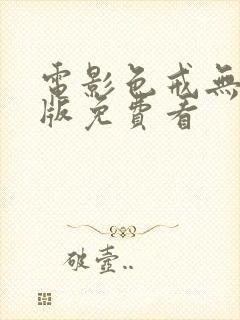 電影色戒無
版免費看
破壺..